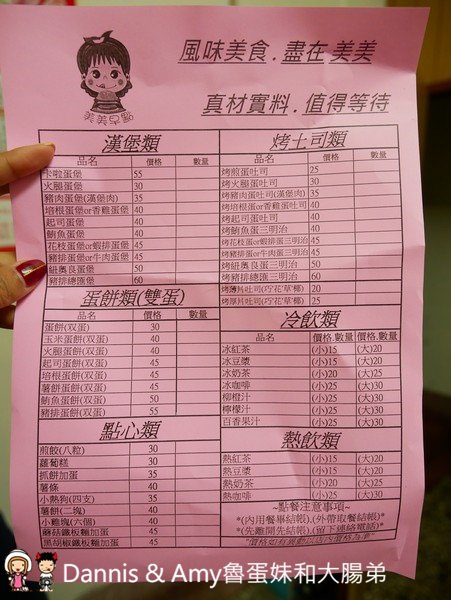 風味美食.盡在 美美
真材實料.值得等待
美美早點
漢堡類
品名 價格 數量
卡啦蛋堡 55
火腿蛋堡 30
豬肉蛋堡(漢堡肉) 35
培根蛋堡or香雞蛋堡 40
起司蛋堡 40
鮪魚蛋堡 40
花枝蛋堡or蝦排蛋堡 45
豬排蛋堡or牛肉蛋堡 45
紐奧良蛋堡 50
豬排總匯堡 60
蛋餅類(雙蛋)
品名 價格 數量
蛋餅(双蛋) 30
玉米蛋餅(双蛋) 40
火腿蛋餅(双蛋) 40
起司蛋餅(双蛋) 45
培根蛋餅(双蛋) 45
薯餅蛋餅(双蛋) 45
鮪魚蛋餅(双蛋) 50
豬排蛋餅(双蛋) 55
點心類
煎餃(八粒) 30
蘿蔔糕 30
抓餅加蛋 35
薯條 30
小熱狗(四支) 35
薯餅(二塊) 40
小雞塊(六個) 40
蘑菇鐵板麵加蛋 45
黑胡椒鐵板麵加蛋 45
烤土司類
品名 價格 數量
烤煎蛋吐司 25
烤火腿蛋吐司 30
烤豬肉蛋吐司(漢堡肉) 35
烤培根蛋or香雞蛋吐司 40
烤起司蛋吐司 40
烤鮪魚蛋三明治 40
烤花枝蛋or蝦排蛋三明治 45
烤豬排蛋or牛肉蛋三明治 45
烤紐奧良蛋三明治 50
烤豬排總匯三明治 60
烤薄片吐司(巧/花/草/椰) 20
烤厚片吐司(巧/花/草/椰) 25
冷飲類
品名 價格.數量 價格.數量
冰紅茶 (小)15 (大)20
冰豆漿 (小)15 (大)20
冰奶茶 (小)20 (大)25
冰咖啡 (小)25 (大)30
柳橙汁 (小)25 (大)30
檸檬汁 (小)25 (大)30
百香果汁 (小)25 (大)30
熱飲類
熱紅茶 (小)15 (大)20
熱豆漿 (小)15 (大)20
熱奶茶 (小)20 (大)25
熱咖啡 (小)25 (大)30
~點餐注意事項~
*(內用餐畢結帳),(外帶取餐結帳)
*(先離開先結帳),(留下連絡電話)*
Dannis & Amy魯蛋妹和大腸弟